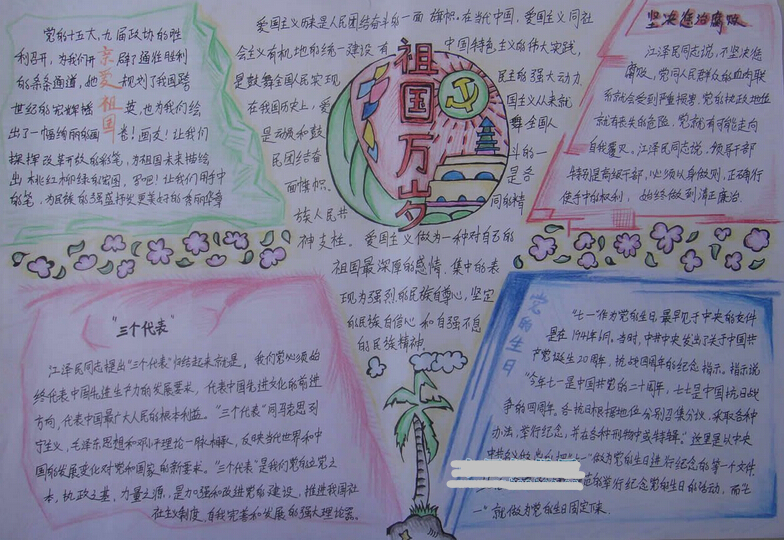 党的十五大、九届政协的胜
利召开,为我们开辟了通往胜利
的条条通道,他规划了我国跨
世纪的宏辉
出了一幅绚丽的画卷!画友!让我们
挥改革开放的彩笔,为祖国未来描绘
出桃红柳绿的宏图,
京爱祖国
爱国主义历来是人民团结奋斗的一面旗帜。在当代中国,爱国主义同社
会主义有机地的统一建设有中国特色主义的伟大实践,
是鼓舞全国人民实现民主的强大动力
在我国历史上,爱国主义从来就
是动员和鼓舞全国人
民团结奋斗的一
面旗帜。是各
族人民共同的精
神支柱。爱国主义做为一种对自己的
祖国最深厚的感情,集中的表
现为强烈的民族自尊心,坚定
的民族自信心和自强不息
的民族精神。
祖国万岁
坚决惩治腐败
江泽民同志说,不坚决惩
腐败,党同人民群众的血肉联
系就会受到严重损害,党的执政地位
就有丧失的危险,党就有可能走向
自我覆灭。江泽民同志说,领导干部
特别是高级干部,必须从身做则,正确行
使手中的权利,始终做到清正廉洁
"三个代表"
江泽民同志提出"三个代表"归结起来就是,我们党必须始
终代表中国先进生产力的发展要求,代表中国先进文化的前进
方向,代表中国最广大人民的根本利益。"三个代表"同马克思列
宁主义,毛泽东思想和邓小平理论一脉相承,反映当代世界和中
国的发展变化对党和国家的新要求。"三个代表"是我们党的立党之
本,执政之基,力量之源,是加强和改进党的建设,推进我国社
社会主义制度,自我完善和发展的强大理论武器。
党的生日
"七一"作为党的生日,最早见于中央的文件
是在1941年6月。当时,中共中央发出了关于中国共
产党诞生20周年,抗战四周年的纪念指示。指示说
"今年七一是中国共党的二十周年,七七是中国抗日战
争的四周年。各抗日根据地应分别召集会议,采取各种
办法,举行纪念,并在各种刊物中出特辑。"这里是以中央
"七一"做为党的生日进行纪念的第一个文件
举行纪念党的生日的活动,而"七
一"就做为党的生日固定下来。